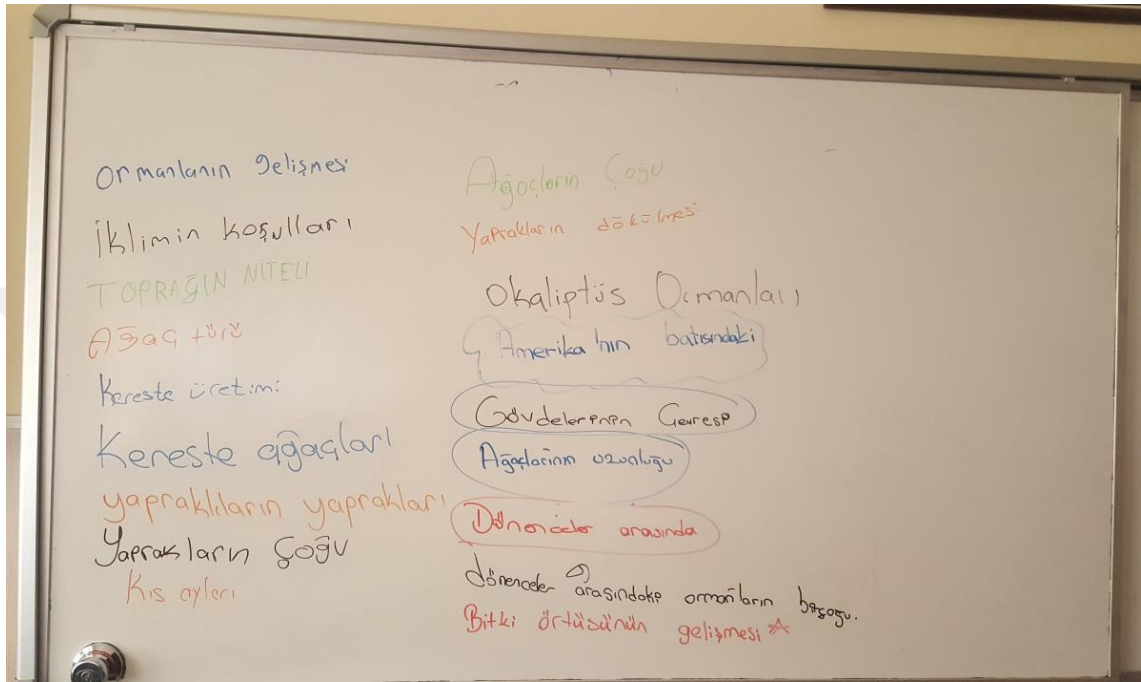 Ormanlanın gelişmesi
İklimin koşulları
TOPRAĞIN NİTELİ
Ağaç türü
Kereste üretimi
Kereste ağaçları
yapraklıların yaprakları
Yaprakların Çoğu
Kış ayları
Ağaçların Çoğu
Yaprakların dökülmesi
Okaliptüs Ormanları
Amerika'nın batısındaki
Gövdelerinin Çevresi
Ağaçlarının uzunluğu
Dönenceler arasında
dönenceler arasındaki ormanların
Bitki örtüsünün gelişmesi